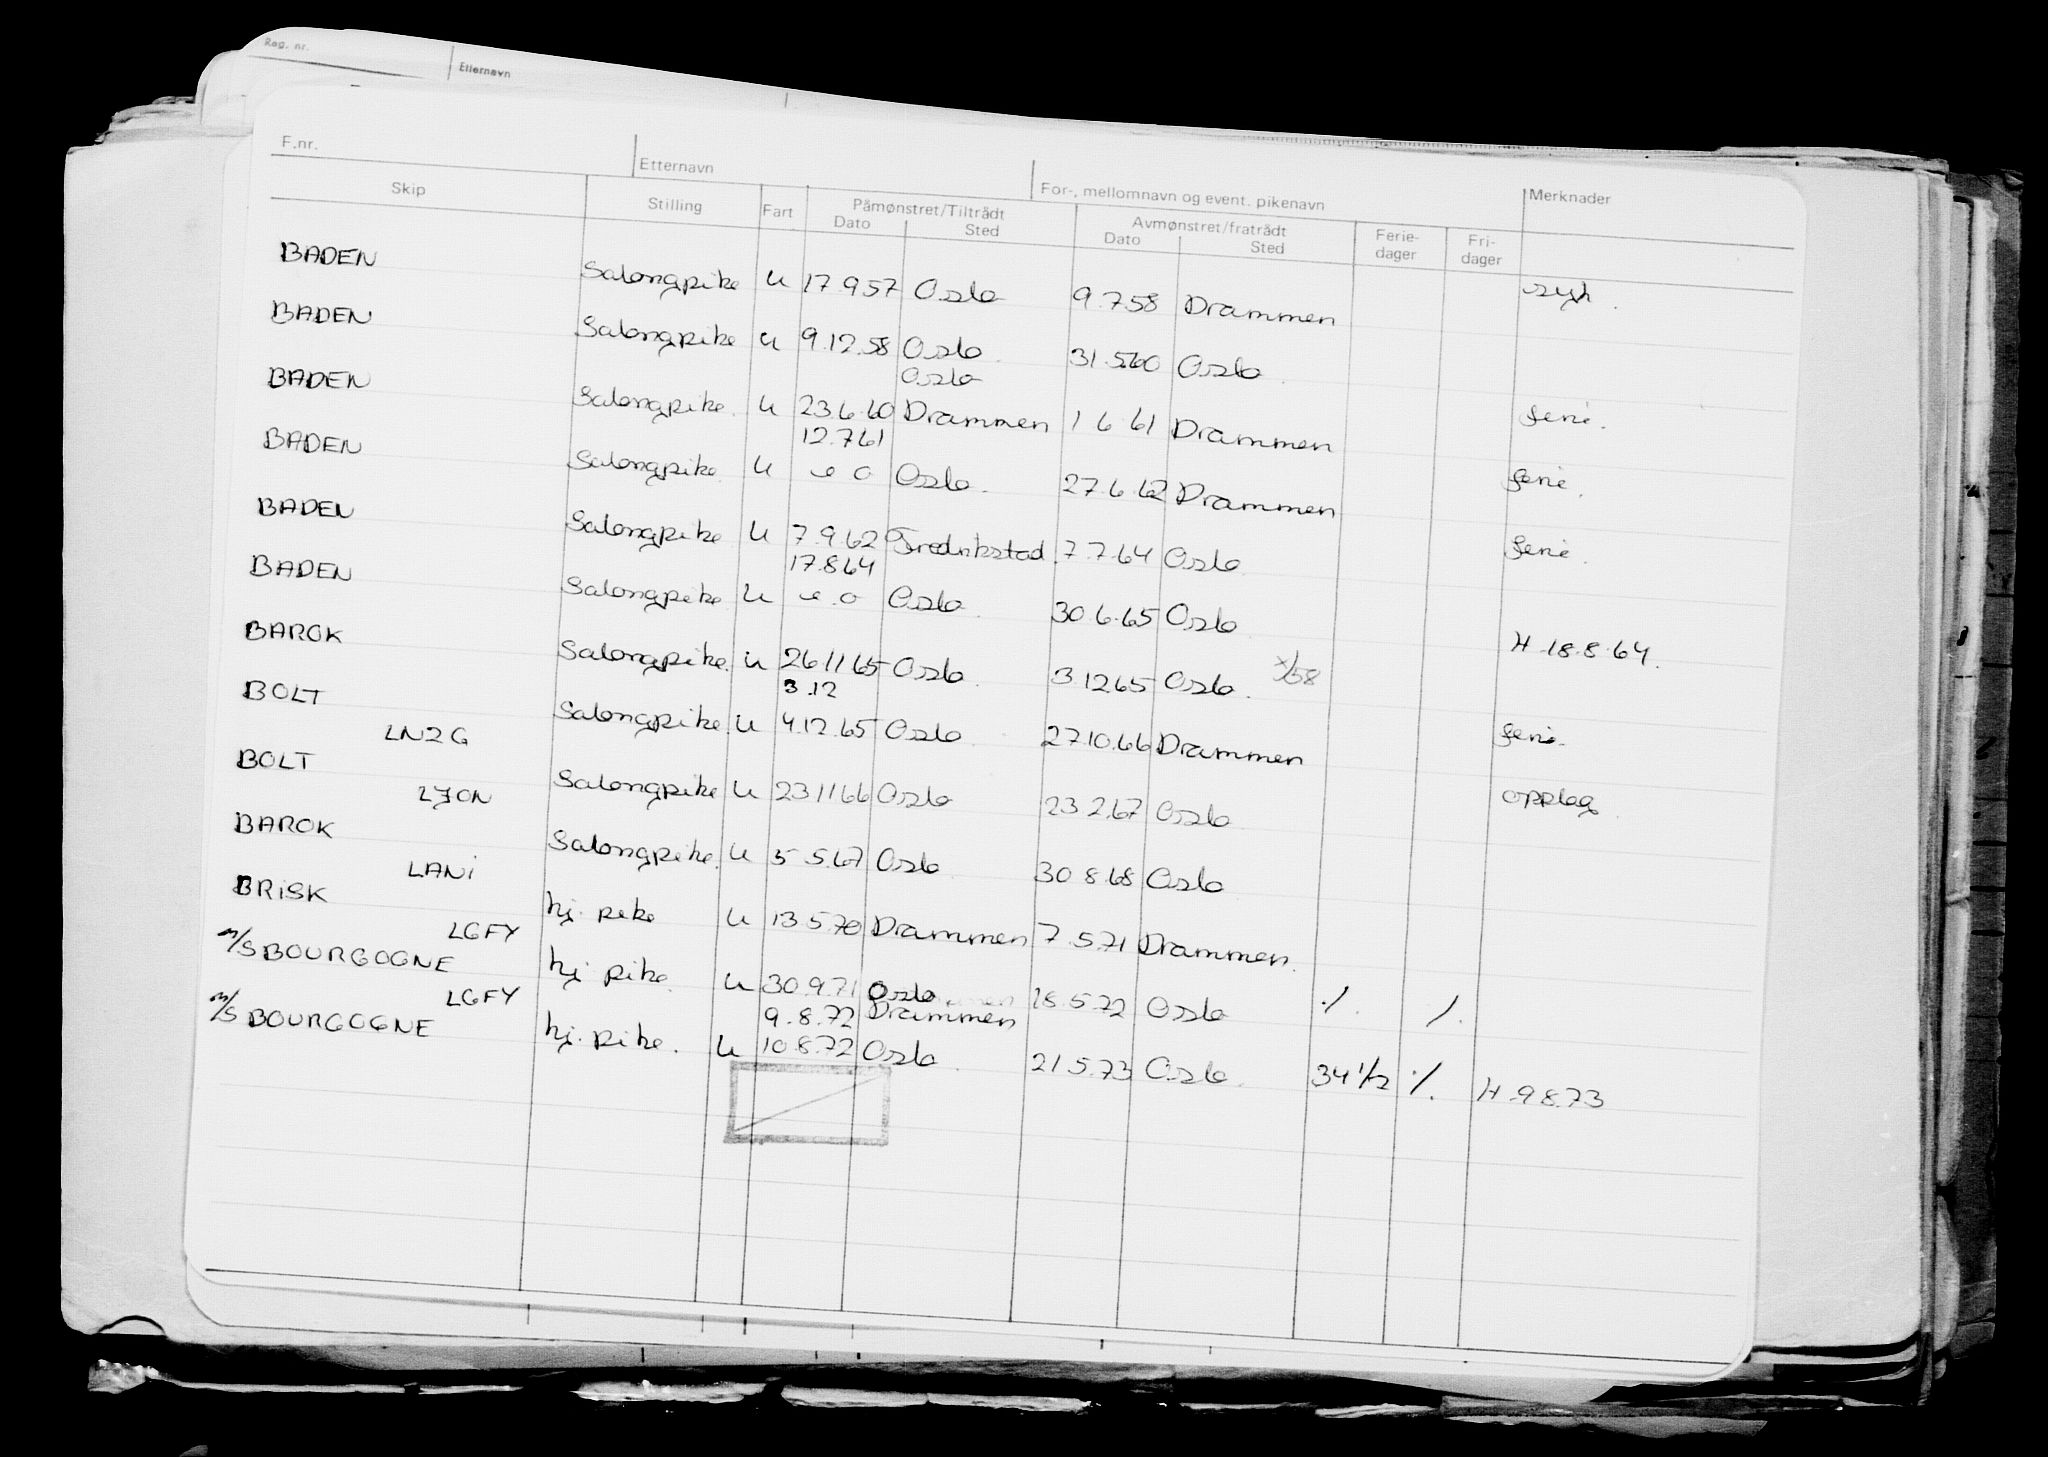 Reg. nr. Etternavn
F.nr. Etternavn For-, mellomnavn og event. pikenavn Merknader
Skip Stilling Fart Påmønstret/Tiltrådt Avmønstret/fratrådt Ferie- Fri-
Dato Sted Dato Sted dager dager
BADEN Salongpike u 17.9.57 Oslo 9.7.58 Drammen syk.
BADEN Salongpike u 9.12.58 Oslo 31.5.60 Oslo
Oslo
BADEN Salongpike u 23.6.60 Drammen 1.6.61 Drammen ferie.
12.7.61
BADEN Salongpike u e o Oslo. 27.6.62 Drammen ferie.
BADEN Salongpike u 7.9.62 Fredrikstad 7.7.64 Oslo ferie.
17.8.64
BADEN Salongpike u e o Oslo. 30.6.65 Oslo H. 18.8.64.
BAROK Salongpike u 26.11.65 Oslo. 3.12.65 Oslo. x/58
3.12
BOLT Salongpike u 4.12.65 Oslo. 27.10.66 Drammen ferie.
LNZG
BOLT Salongpike u 23.11.66 Oslo 23.2.67 Oslo opplag.
LJON
BAROK Salongpike u 5.5.67 Oslo 30.8.68 Oslo
LANI
BRISK hj. pike u 13.5.70 Drammen 7.5.71 Drammen.
LGFY
M/S BOURGOGNE hj. pike. u 30.9.71 Oslo 18.5.72 Oslo ·/. /.
LGFY 9.8.72 Drammen
M/S BOURGOGNE hj. pike. u 10.8.72 Oslo. 21.5.73 Oslo. 34 1/2 ·/. H. 9.8.73